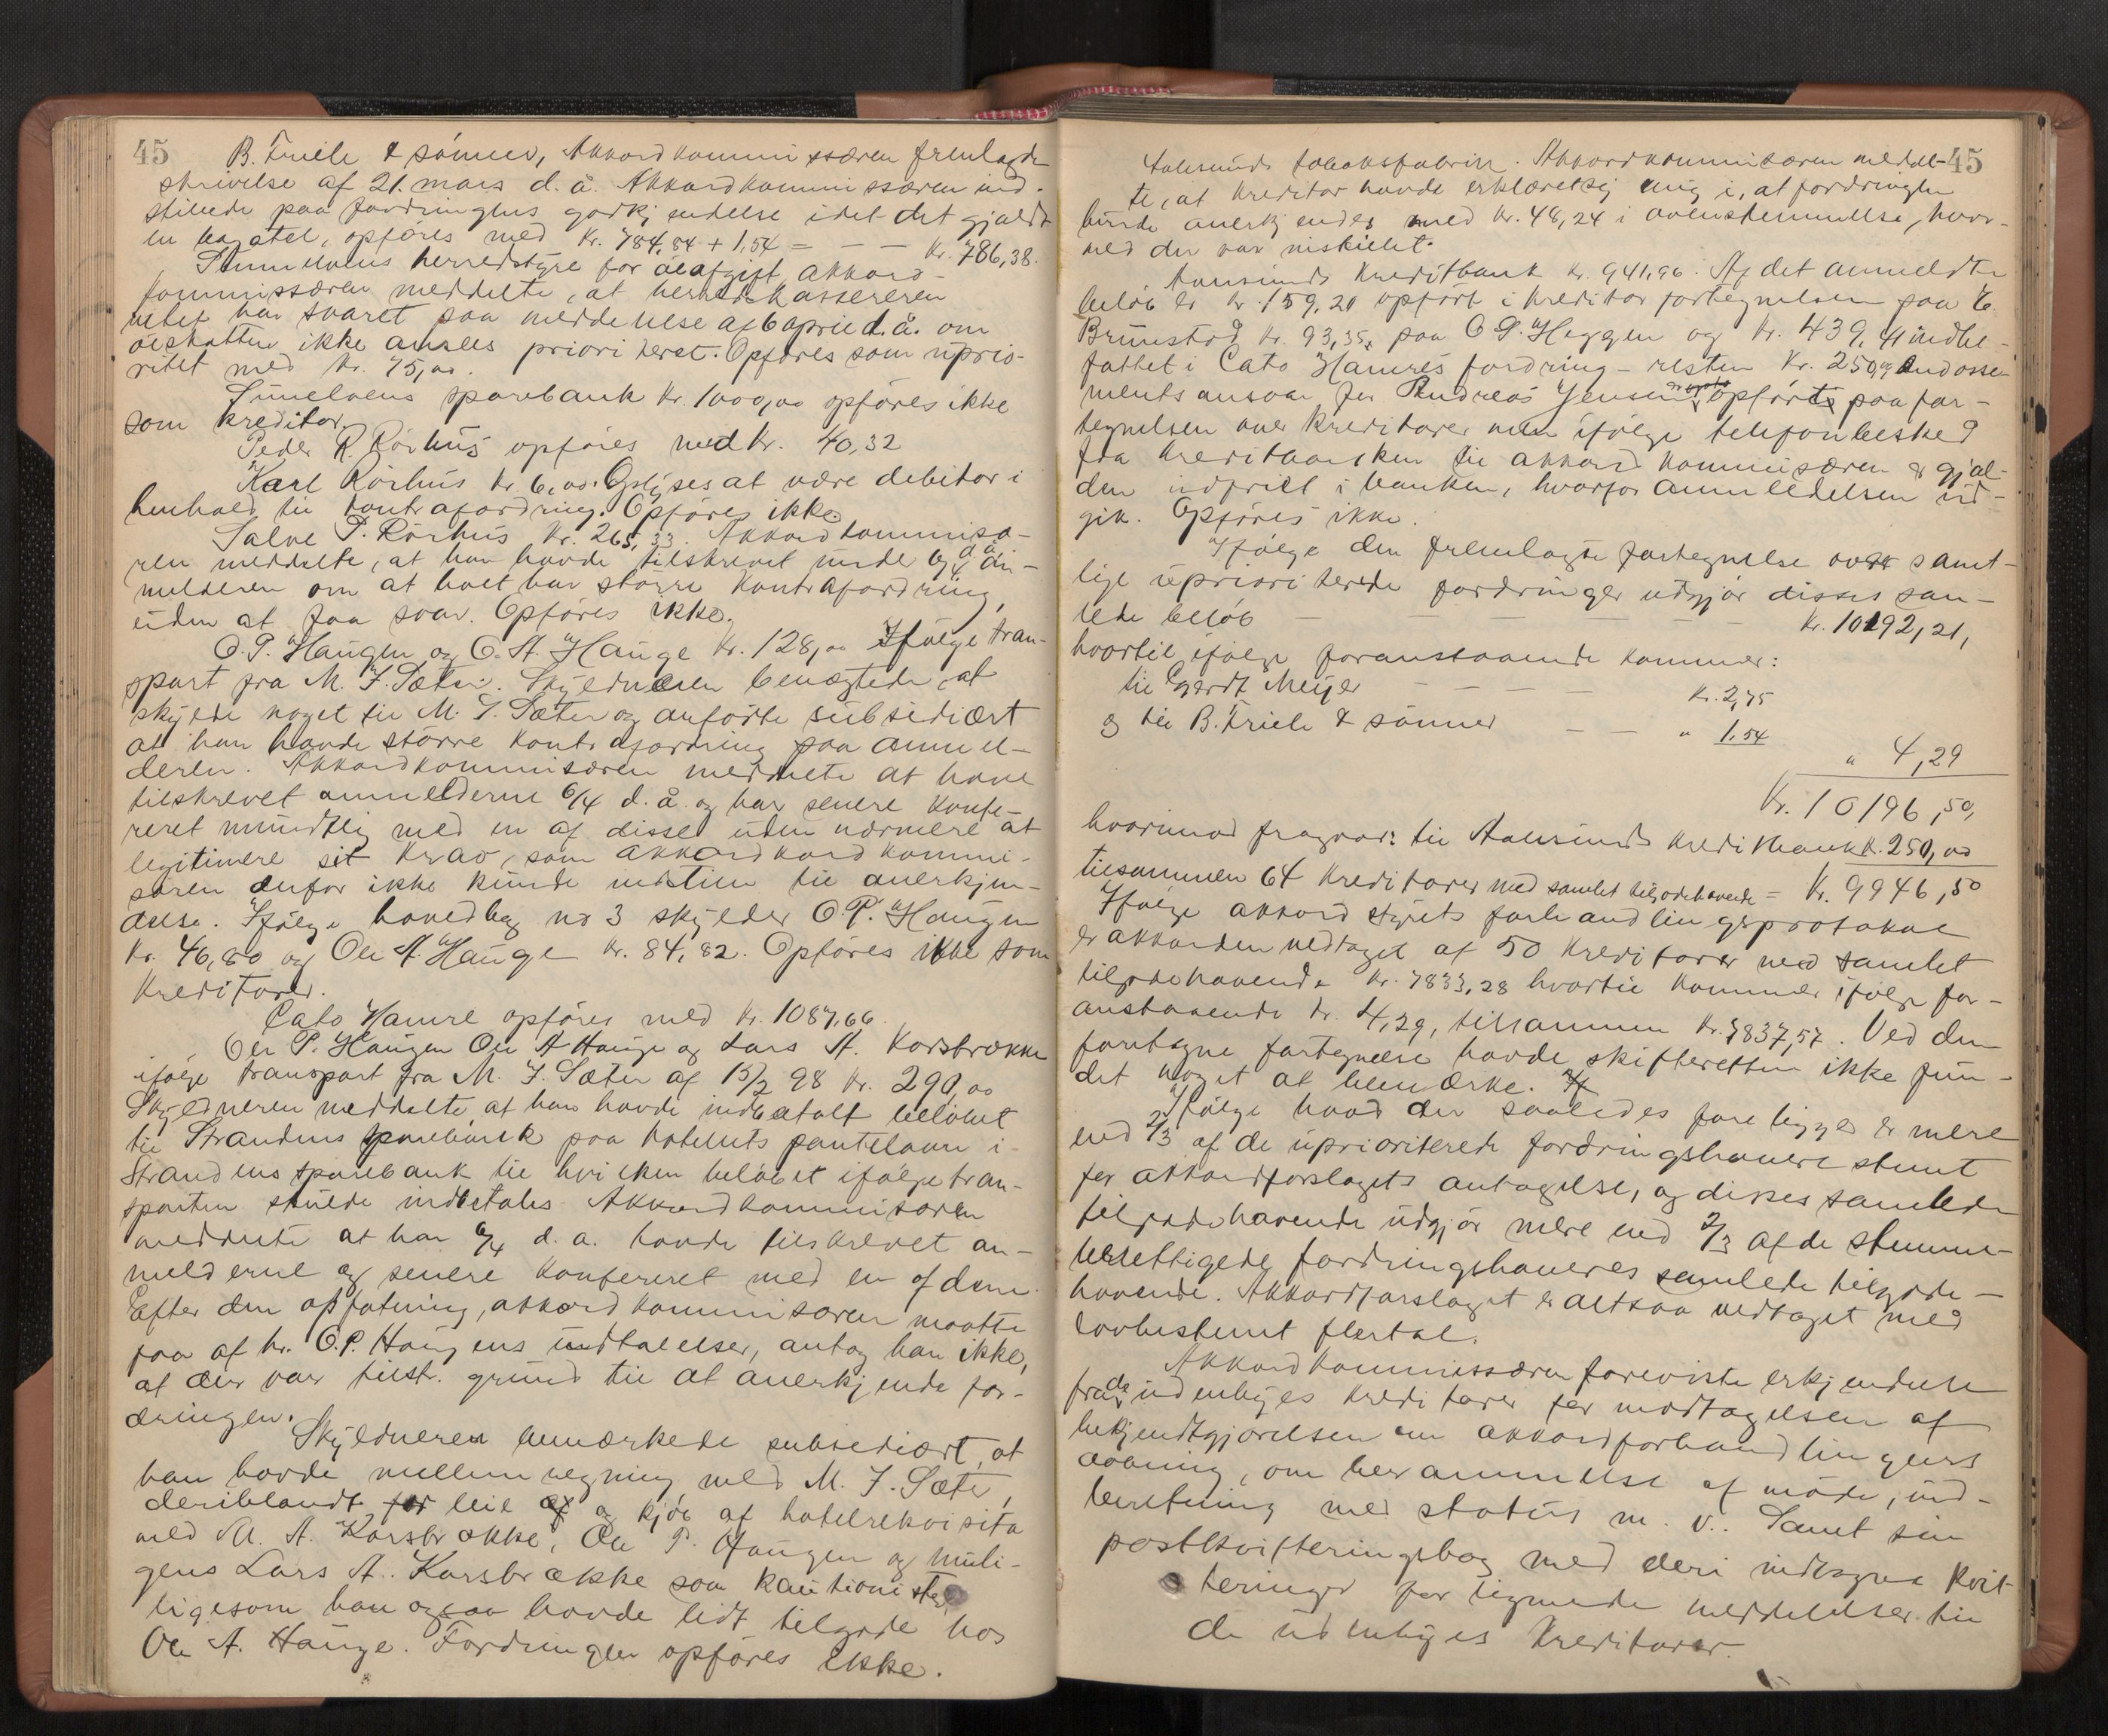 45
B. Friele & sønner, Akkordkommissæren fremlagde
skrivelse af 21. mars d. å. Akkordkommissæren ind-
stillede paa fordringens godkjendelse idet det gjaldt
en bagatel, opføres med Kr. 784,84 + 1,54 = — — Kr. 786,38.
Sunnelvens herredstyre for ølafgift Akkord-
kommissæren meddelte, at herredskassereren
intet har svaret paa meddelelse af 6 april d. å. om
ølskatten ikke ansees prioriteret. Opføres som uprio-
ritet med Kr. 75,00.
Sunelvens sparebank Kr. 1000,00 opføres ikke
som kreditor.
Peder R. Rørhus opføres med Kr. 40,32
Karl Rørhus Kr 6,00. Oplyses at være debitor i
henhold til kontrafordring. Opføres ikke.
Salve P. Rørhus Kr. 265,33. Akkordkommisæ-
ren meddelte, at han havde tilskrevet under 6/4 d. å. an-
melderen om at boet har større kontrafordring,
uden at faa svar. Opføres ikke.
O. P. Haugen og O. A. Hauge Kr. 128,00 Ifølge tran-
sport fra M. J. Sæter. Skyldneren benægtede, at
skylde noget til M. J. Sæter og anførte subsidiært
at han havde større kontrafordring paa anmel-
deren. Akkordkommisæren meddelte at have
tilskrevet anmelderne 6/4 d. å. og har senere konfe-
reret mundtlig med en af disse uden nærmere at
legitimere sit krav, som akkordkord kommi-
særen derfor ikke kunde indstille til anerkjen-
delse. Ifølge hovedbog no 3 skylder O. P. Haugen
Kr. 46,80 og Ole A. Hauge Kr. 84,82. Opføres ikke som
Kreditorer.
Cato Hamre opføres med Kr. 1087,66.
Ole P. Haugen Ole A Hauge og Lars A. Korsbrække
ifølge transport fra M. J. Sæter af 15/2 98 Kr. 290,00
Skyldneren meddelte at han havde indbetalt beløbet
til Strandens sparebank paa hotellets pantelaan i
Strandens sparebank til hvilken beløbet ifølge tran-
sporten skulde indbetales Akkordkommisæren
meddelte at han 6/4 d. a. havde tilskrevet an-
melderne og senere konfereret med en af dem.
Efter den opfatning, akkordkommisæren maatte
faa af hr. O. P. Haugens undtalelser, antog han ikke,
at der var tilstr. grund til at anerkjende for-
dringen.
Skyldneren bemærkede subsidiært, at
han havde mellemregning med M. J. Sæter,
deriblandt for leie af og kjøb af hotelrekvisita
med M. A. Korsbrække, Ole P. Haugen og muli-
gens Lars A. Korsbrække som kautionister
ligesom han ogsaa havde lidt tilgode hos
Ole A. Hauge. Fordringen opføres ikke.
45
Aalesunds tobaksfabrik. Akkordkommisæren meddel-
te, at kreditor havde erklæret sig enig i, at fordringen
burde anerkjendes med Kr. 48,24 i overenstemmelse, hvor-
med der var
Aalesunds Kreditbank Kr. 941,96. Af det anmeldte
beløb er Kr. 159,20 opført i kreditorfortegnelsen paa E.
Brunstad Kr. 93,35, paa O P. Heggen og Kr. 439,41 indbe-
fattet i Cato Hamres fordring – resten Kr. 250,00 endosse-
mentsansvar for Andreas Jensen opført paa for-
tegnelsen over kreditorer men ifølge telefonbesked
fra kreditbanken til akkordkommisæren er gjæl-
den indfriet i banken, hvorfor anmeldelsen ud-
gik. Opføres ikke.
Ifølge den fremlagte fortegnelse over samt-
lige uprioriterede fordringer udgjør disses sam-
lede beløb — — — — — Kr. 10192,21,
hvortil ifølge foranstaaende kommer:
til Gerdt Meyer — — — — Kr. 2,75
og til B. Friele & sønner — — " 1,54
" 4,29
Kr. 10196,50,
hvorimod fragaar: til Aalesunds kreditbank K. 250,00
tilsammen 64 kreditorer med samlet tilgodehavende = Kr. 9946,50
Ifølge akkordstyrets forhandlingsprotokol
er akkorden vedtaget af 50 kreditorer med samlet
tilgodehavende Kr. 7833,28 hvortil kommer ifølge for-
anstaaende Kr. 4,29, tilsammen Kr. 7837,57. Ved den
foretagne fortegnelse havde skifteretten ikke fun-
det noget at bemærke.
Ifølge hvad der saaledes foreligger er mere
end 2/3 af de uprioriterede fordringshavere stemt
for akkordforslagets antagelse, og disses samlede
tilgodehavende udgjør mere end 2/3 af de stemme-
berettigede fordringshaveres samlede tilgode-
havende. Akkordforslaget er altsaa vedtaget med
lovbestemt flertal.
Akkordkommissæren foreviste erkjendelse
fra de udenbyes kreditorer for modtagelsen af
bekjendtgjørelsen om akkordforhandlingens
aabning, om berammelse af møde, ind-
beretning med status m. v.. Samt sin
postkvitteringsbog med deri indtagne kvit-
teringer for lignende meddelelser til
de udenbyes kreditorer.